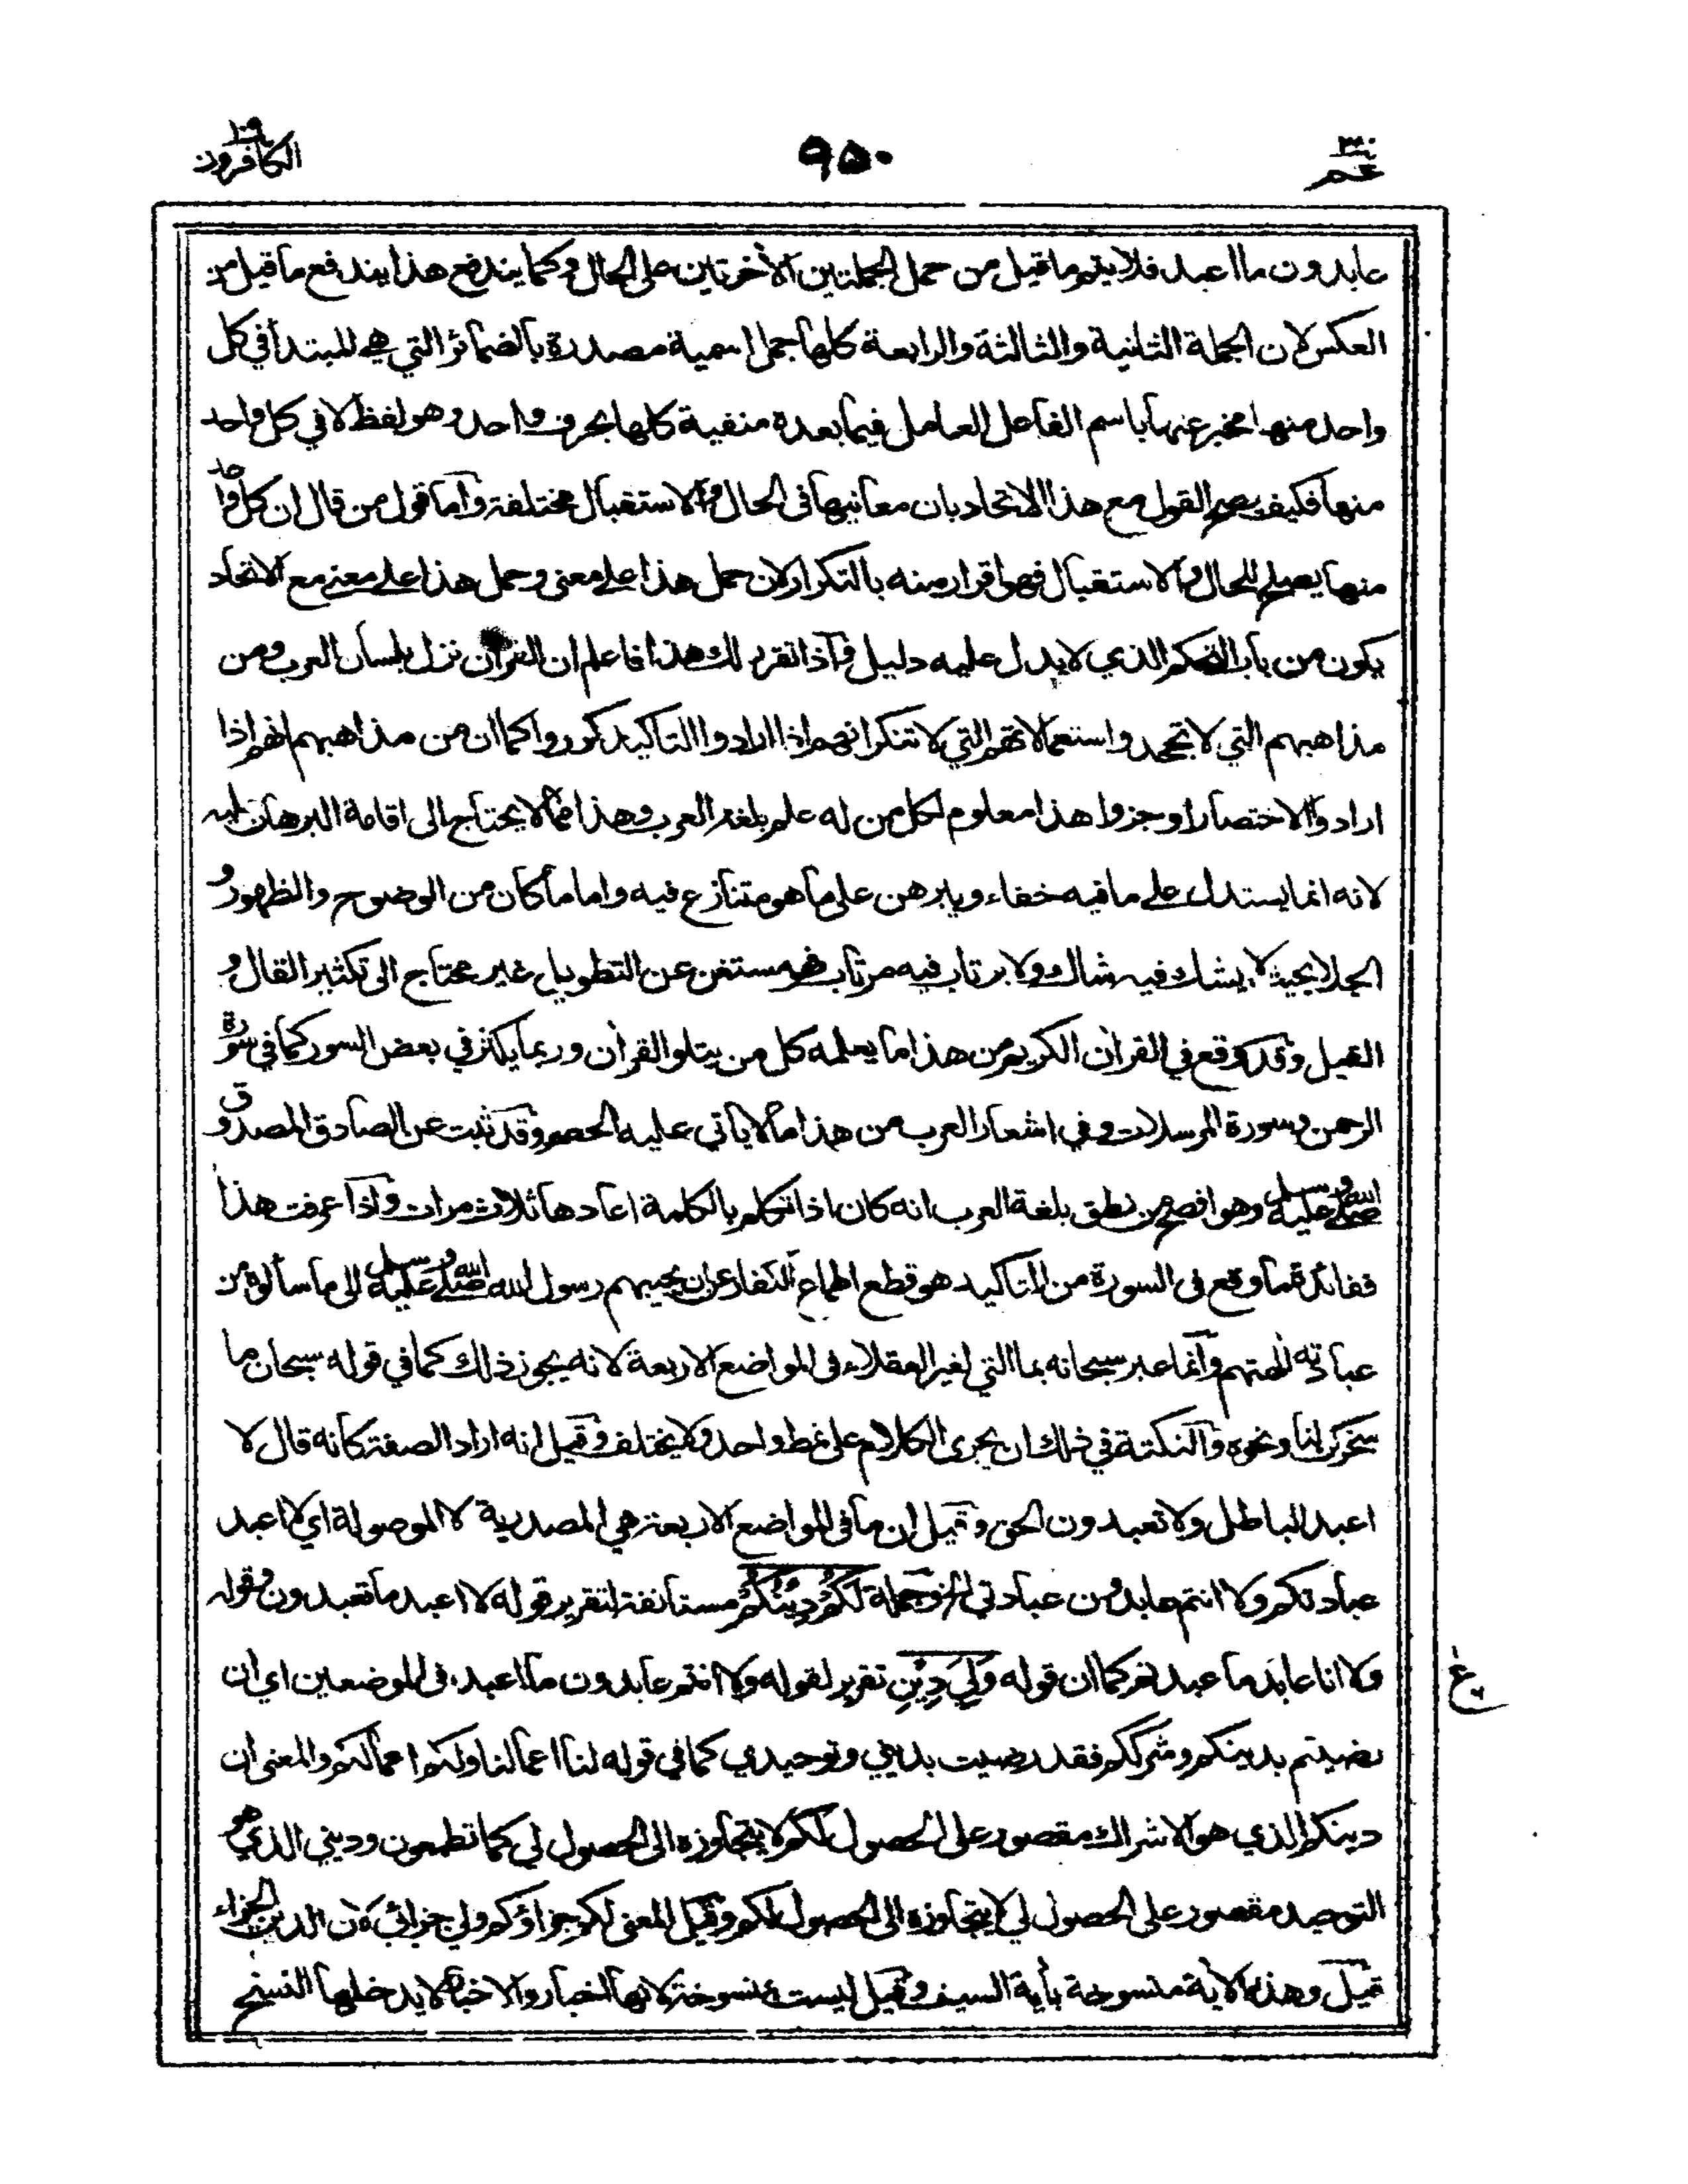 ٣٠ عم
٩٥٠
١٠٩ الكافرون
عابدون ما اعبد فلا يتم ما قيل من حمل الجملتين الأخرتين على الحال وكما يندفع هذا يندفع ما قيل من
العكس لان الجملة الثانية والثالثة والرابعة كلها جمل اسمية مصدرة بالضمائر التي هي المبتدأ في كل
واحد منها مخبر عنها باسم الفاعل العامل فيما بعده منفية كلها بحرف واحد وهو لفظ لا في كل واحد
منها فكيف يصح القول مع هذا الاتحاد بان معانيها في الحال والاستقبال مختلفة وأما قول من قال ان كل واحد
منها يصلح للحال والاستقبال فهو اقرار منه بالتكرار لان حمل هذا على معنى وحمل هذا على معنى مع الاتحاد
يكون من باب التحكم الذي لا يدل عليه دليل وآذا تقرر لك هذا فاعلم ان القرآن نزل بلسان العرب ومن
مذاهبهم التي لا تجحد واستعمالاتهم التي لا تنكر انهم اذا ارادوا التاكيد كرروا كما ان من مذاهبهم انهم اذا
ارادوا الاختصار اوجزوا هذا معلوم لكل من له علم بلغة العرب وهذا مما لا يحتاج الى اقامة البرهان عليه
لانه انما يستدل على ما فيه خفاء ويبرهن على ما هو متنازع فيه واما ما كان من الوضوح والظهور و
الجلا بحيث لا يشك فيه شاك ولا يرتاب فيه مرتاب فهو مستغن عن التطويل غير محتاج الى تكثير القال و
القيل وقد وقع في القرآن الكريم من هذا ما يعلمه كل من يتلو القرآن وربما يكثر في بعض السور كما في سورة
الرحمن وسورة المرسلات وفي اشعار العرب من هذا ما لا ياتي عليه الحصر وقد ثبت عن الصادق المصدوق
صلى الله عليه وسلم وهو افصح من نطق بلغة العرب انه كان اذا تكلم بالكلمة اعادها ثلاث مرات واذا عرفت هذا
ففائدة ما وقع في السورة من التاكيد هو قطع اطماع الكفار عن ان يجيبهم رسول الله صلى الله عليه وسلم الى ما سألوه من
عبادته آلهتهم وآنما عبر سبحانه بما التي لغير العقلاء في المواضع الاربعة لانه يجوز ذلك كما في قوله سبحان ما
سخركن لنا ونحوه والنكتة في ذلك ان يجري الكلام على نمط واحد ولا يختلف وقيل انه اراد الصفة كانه قال لا
اعبد الباطل ولا تعبدون الحق وقيل ان ما في المواضع الاربعة هي المصدرية لا الموصولة اي لا اعبد
عبادتكم ولا انتم عابدون عبادتي الخ وجملة لَكُمْ دِيْنُكُمْ مستانفة لتقرير قوله لا اعبد ما تعبدون وقوله
ولا انا عابد ما عبدتم كما ان قوله وَلِيَ دِيْنِ تقرير لقوله ولا انتم عابدون ما اعبد في الموضعين اي ان
رضيتم بدينكم وشرككم فقد رضيت بديني وتوحيدي كما في قوله لنا اعمالنا ولكم اعمالكم والمعنى ان
دينكم الذي هو الاشراك مقصور على الحصول لكم لا يتجاوزه الى الحصول لي كما تطمعون وديني الذي هو
التوحيد مقصور على الحصول لي لا يتجاوزه الى الحصول لكم وقيل المعنى لكم جزاؤكم ولي جزائي لان الدين الجزاء
قيل وهذه الآية منسوخة بأية السيف وقيل ليست بمنسوخة لانها اخبار والاخبار لا يدخلها النسخ
ع